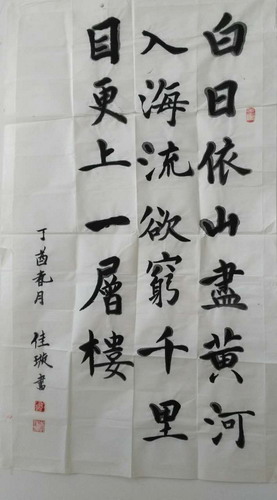 白日依山盡黃河
入海流欲窮千里
目更上一層樓
丁酉春月
佳璇書